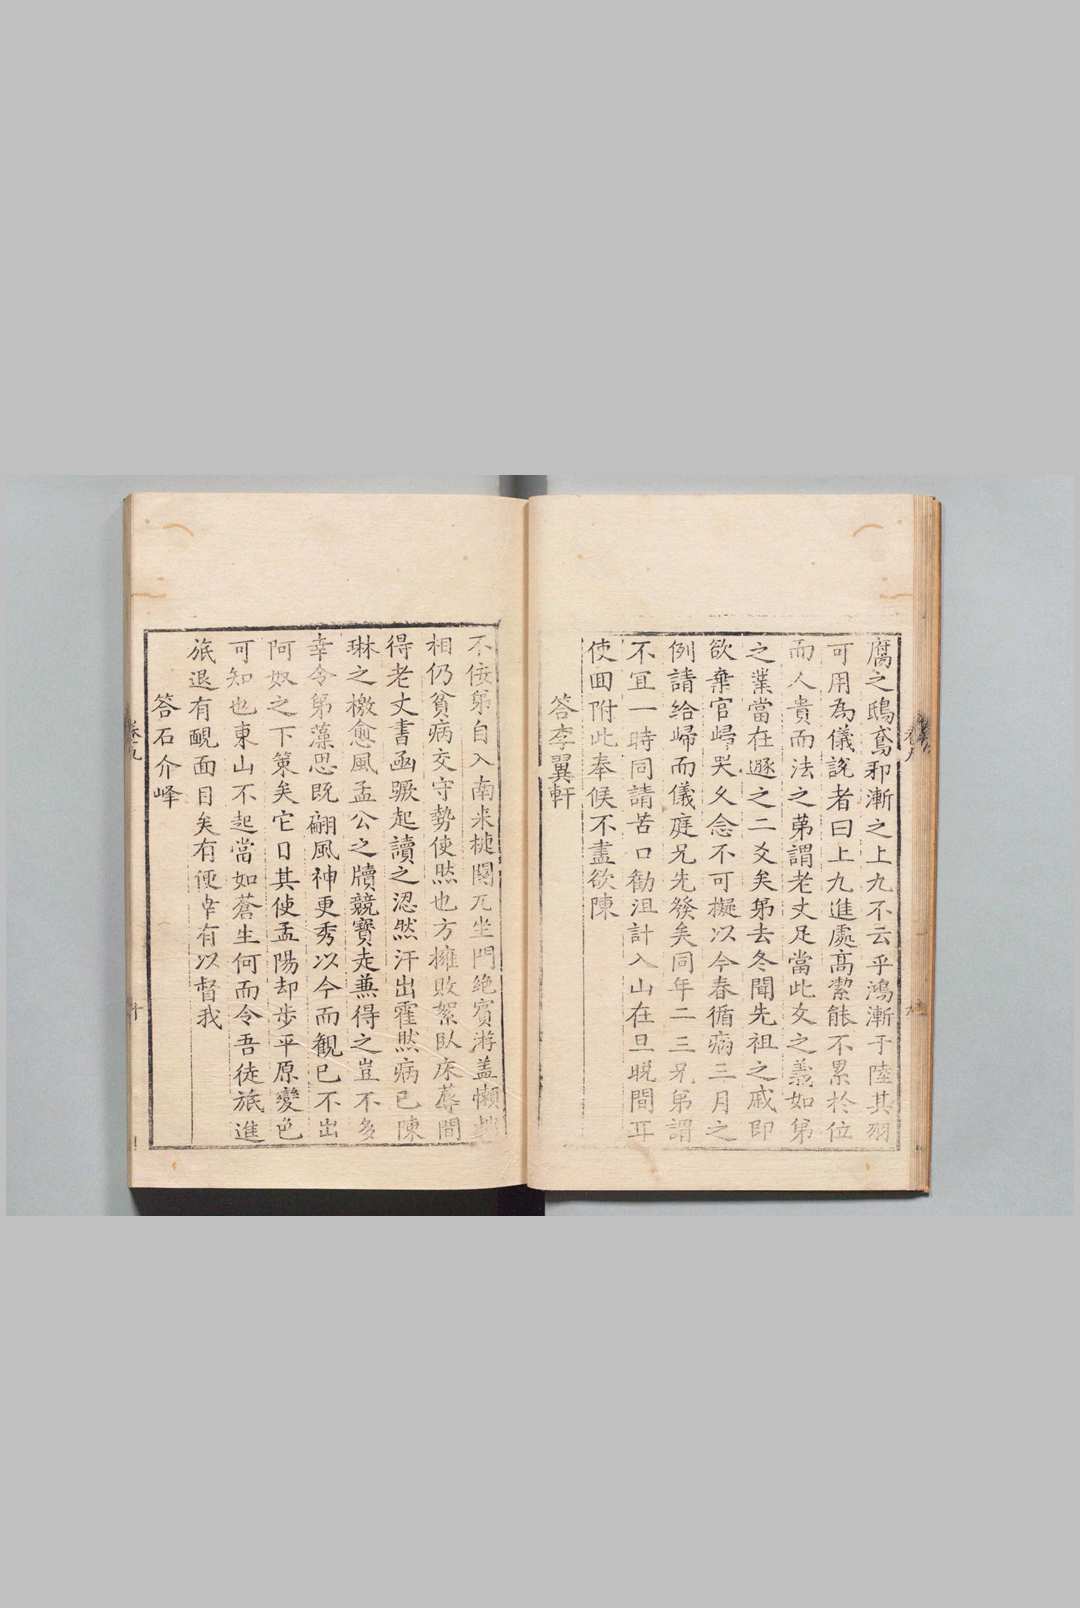 腐之鴟鳶邪漸之上九不云乎鴻漸于陸其羽
可用為儀說者曰上九進處高絜能不累於位
而人貴而法之苐謂老丈足當此爻之義如第
之業當在遯之二爻矣苐去冬聞先祖之戚即
欲棄官歸哭父念不可擬以今春循病三月之
例請給歸而儀庭兄先發矣同年二三兄苐謂
不宜一時同請苦口勸沮計入山在旦晚間耳
使回附此奉候不盡欲陳
答李翼軒
不佞苐自入南来楗關兀坐門絶賓游盖懶
相仍貧病交守勢使然也方擁敗絮臥床蓐間
得老丈書函蹶起讀之涊然汗出霍然病已陳
琳之檄愈風孟公之牘競寶走蕪得之豈不多
幸令苐藻思既翩風神更秀以今而觀已不出
阿奴之下策矣它日其使孟陽却步平原變色
可知也東山不起當如蒼生何而令吾徒旅進
旅退有靦面目矣有便幸有以督我
答石介峰
卷之九
十